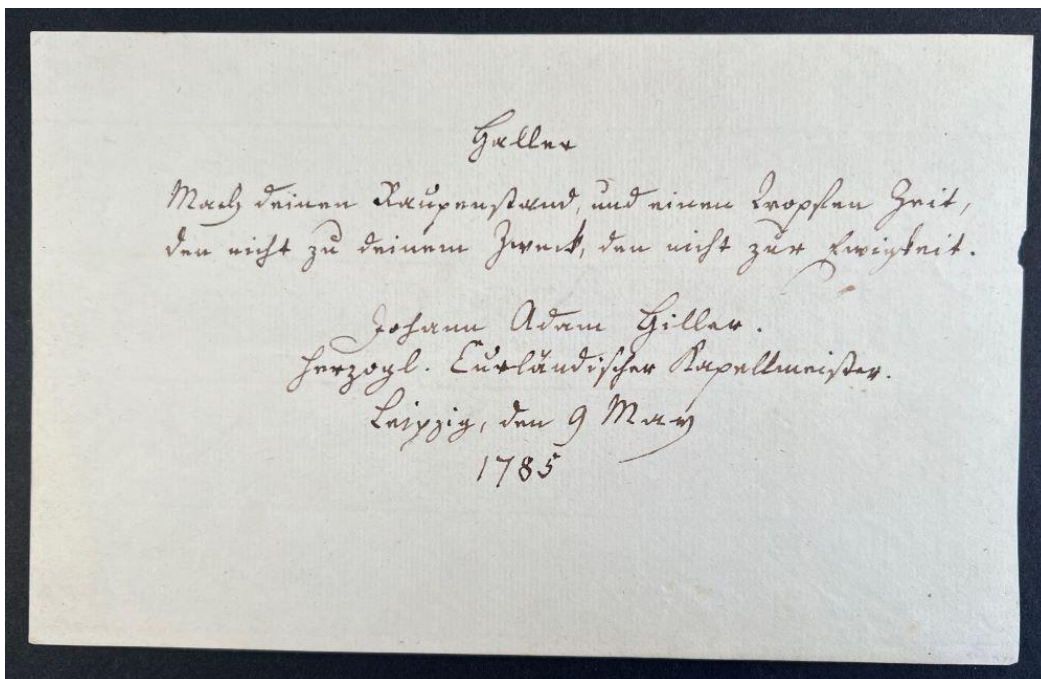 Haller
Mach deinen Raupenstand, und einen Tropfen Zeit,
den nicht zu deinem Zweck, den nicht zur Ewigkeit.
Johann Adam Hiller.
Herzogl. Curländischer Kapellmeister.
Leipzig, den 9 May
1785